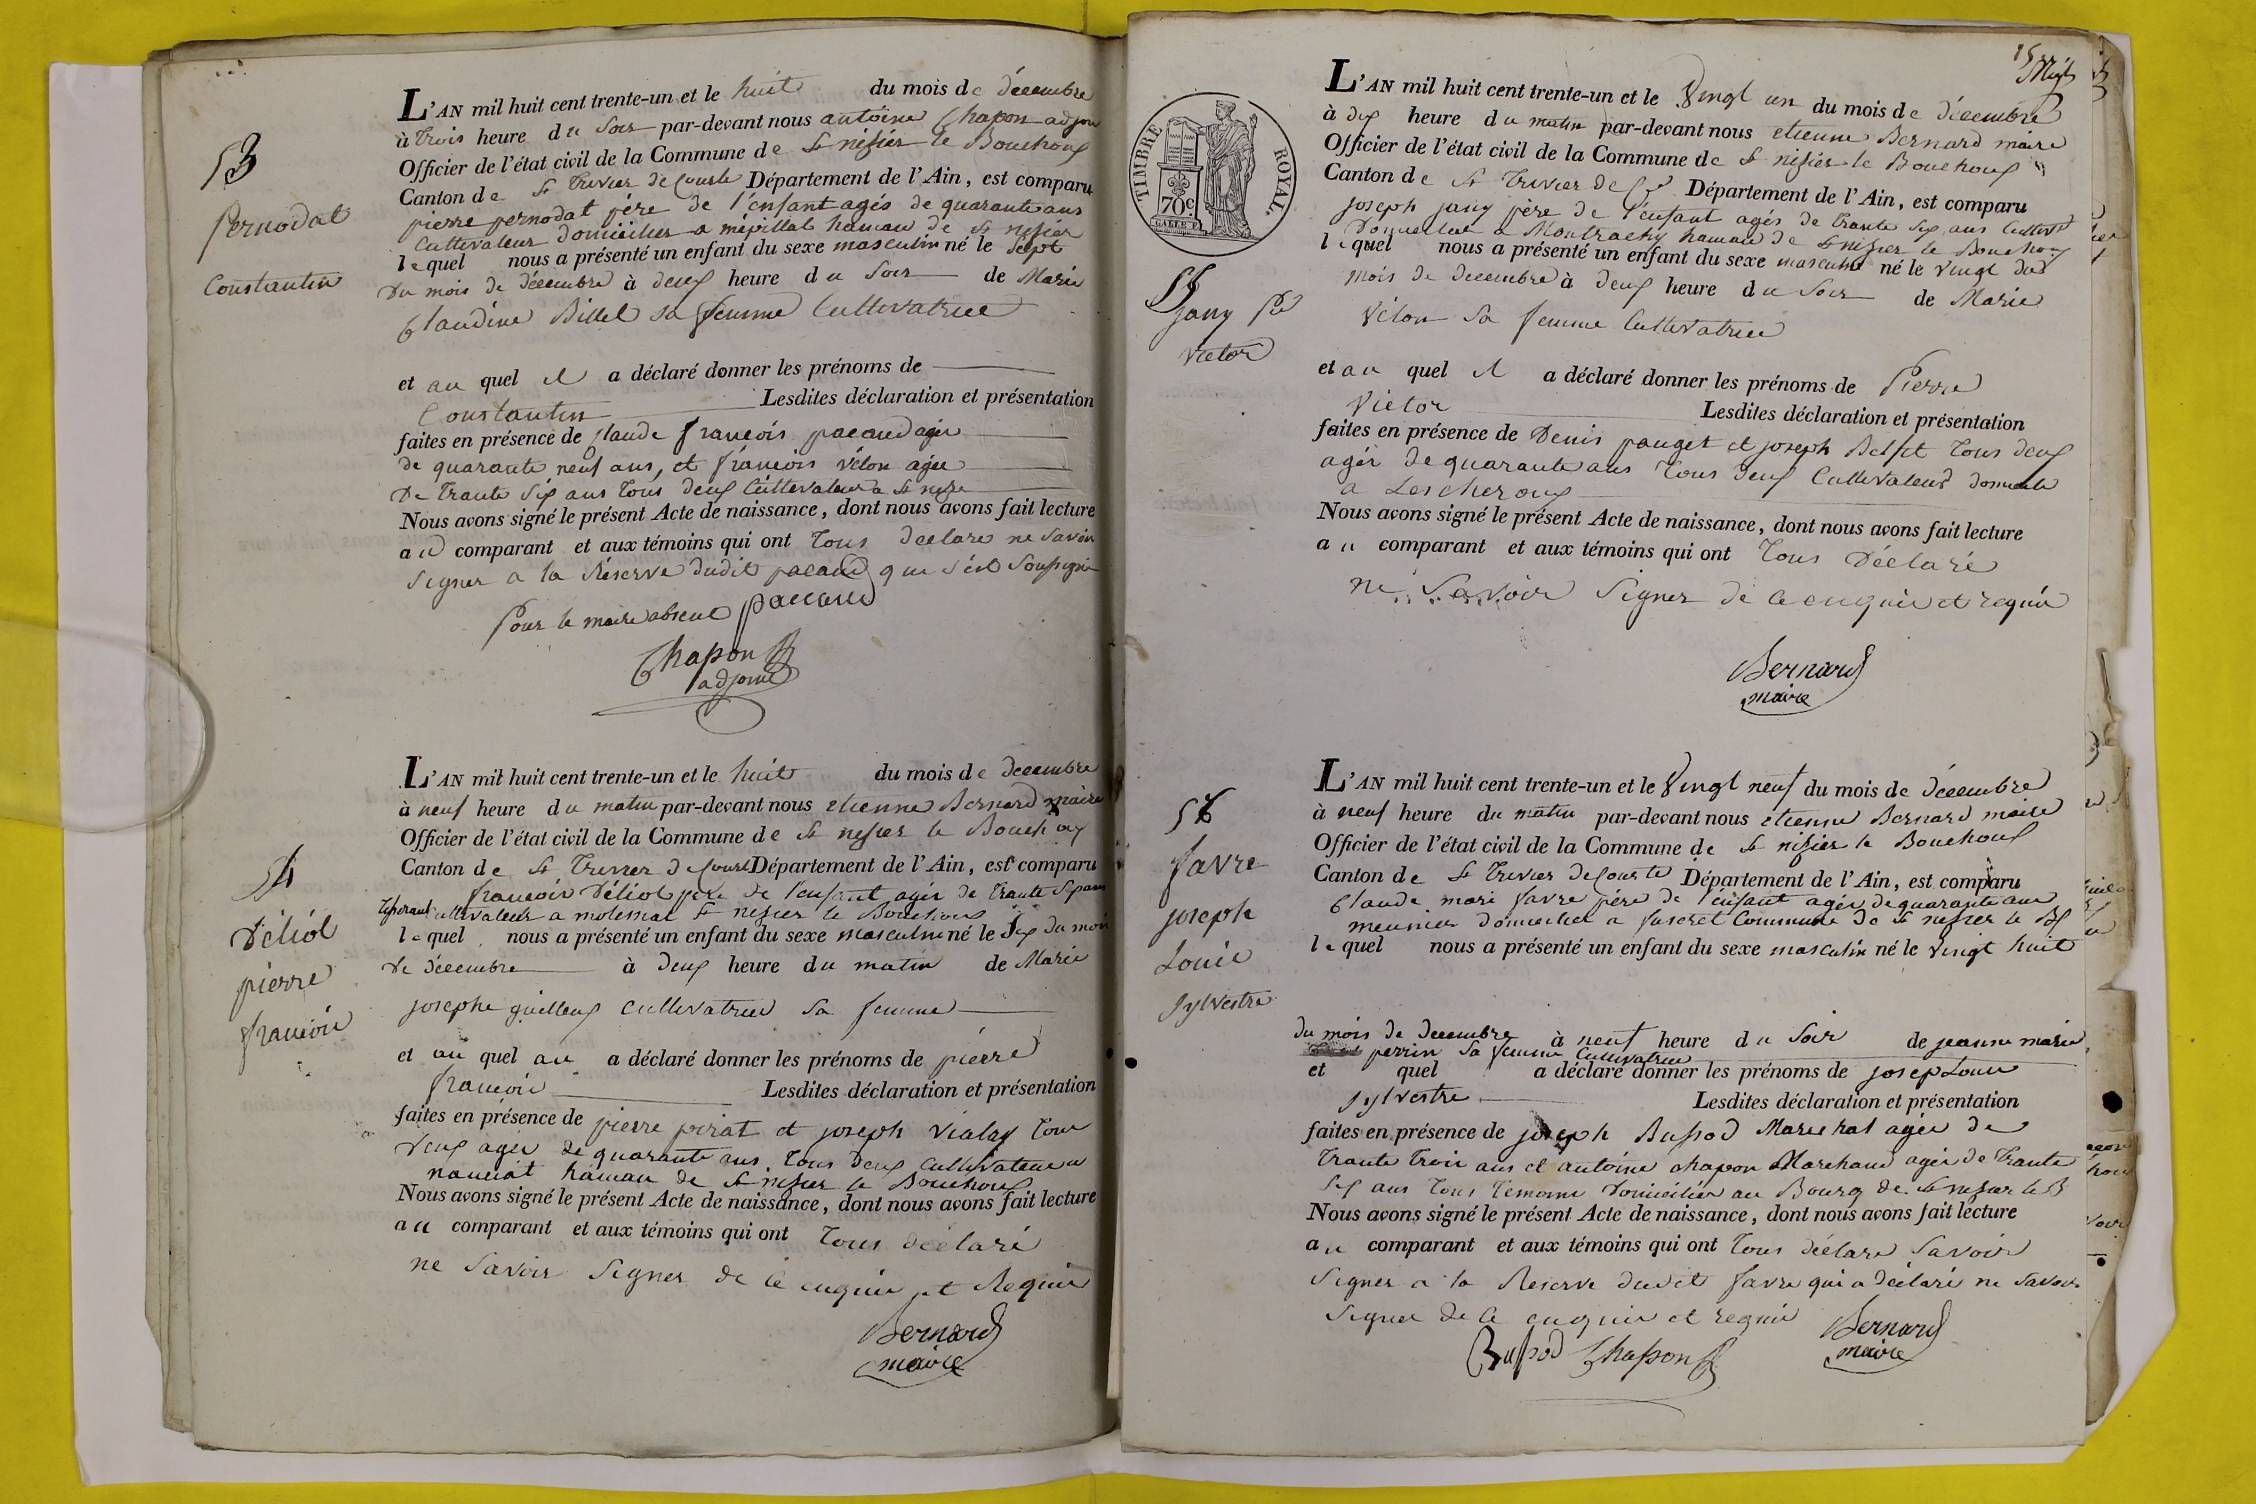 53
Pernodat
Constantin
L'AN mil huit cent trente-un et le huit du mois de décembre
à trois heure du soir par-devant nous antoine Chapon adjoin
Officier de l'état civil de la Commune de St nisier le Bouchoux
Canton de St trivier de Courte Département de l'Ain, est comparu
pierre pernodat père de l'enfant agés de quarante ans
Cultivateur domicilier a mépillat hamau de St nisier
lequel nous a présenté un enfant du sexe masculin né le sept
du mois de décembre à deux heure du soir de Marie
Claudine Billet sa femme Cultivatrice
et au quel il a déclaré donner les prénoms de
Constantin Lesdites déclaration et présentation
faites en présence de Claude françois pacaud agée
de quarante neuf ans, et françois vélon agée
De trante six ans tous deux Cultivateur a St nizie
Nous avons signé le présent Acte de naissance, dont nous avons fait lecture
au comparant et aux témoins qui ont tous déclare ne savoir
signer a la Réserve dudit pacaud que s'est soussigné
Pour le maire absent paccaud
Chapon
adjoint
54
Véliot
pierre
françois
L'AN mil huit cent trente-un et le huit du mois de decembre
à neuf heure du matin par-devant nous etienne Bernard maire
Officier de l'état civil de la Commune de St nisier le Bouchoux
Canton de St Trivier de Courte Département de l'Ain, est comparu
françois Véliot père de l'enfant agée de trante six ans
Cultivateur a molemat St nisier le Bouchoux
lequel nous a présenté un enfant du sexe masculin né le six du mois
de décembre à deux heure du matin de Marie
josephe guilleux cultivatrice sa femme
et au quel au a déclaré donner les prénoms de pierre
françois Lesdites déclaration et présentation
faites en présence de pierre pirat et joseph vialay tous
deux agée de quarante ans, tous deux Cultivateur a
nanciat hamau de St nisier le Bouchoux
Nous avons signé le présent Acte de naissance, dont nous avons fait lecture
au comparant et aux témoins qui ont tous déclaré
ne savoir signer de ce enquie et Requie
Bernard
maire
15
TIMBRE ROYAL.
70c
55
Jany Pe
victor
L'AN mil huit cent trente-un et le Vingt un du mois de décembre
à dix heure du matin par-devant nous etienne Bernard maire
Officier de l'état civil de la Commune de St nisier le Bouchoux
Canton de St Trivier de Cte Département de l'Ain, est comparu
joseph jany père de l'enfant agés de trante six ans
Domicilier a Montrachy hamau de St nisier le Bouchoux
lequel nous a présenté un enfant du sexe masculin né le vingt du
mois de decembre à deux heure du soir de Marie
Vélon sa femme Cultivatrice
et au quel il a déclaré donner les prénoms de Pierre
Victor Lesdites déclaration et présentation
faites en présence de Denis pauget et joseph tous deux
agée de quarante ans tous deux Cultivateur domicile
a Lescheroux
Nous avons signé le présent Acte de naissance, dont nous avons fait lecture
au comparant et aux témoins qui ont tous Déclaré
ne Savoir Signer de ce enquie et requie
Bernard
maire
56
favre
joseph
Louie
sylvestre
L'AN mil huit cent trente-un et le Vingt neuf du mois de décembre
à neuf heure du matin par-devant nous etienne Bernard maire
Officier de l'état civil de la Commune de St nisier le Bouchoux
Canton de St Trivier de Courte Département de l'Ain, est comparu
Claude mari favre père de l'enfant agée de quarante ans
meunier domicilier a Commune de St nisier le Bx
lequel nous a présenté un enfant du sexe masculin né le vingt huit
du mois de decembre à neuf heure du soir de jeanne marie
perrin sa femme Cultivatrice
et quel a déclaré donner les prénoms de josep Louie
sylvestre Lesdites déclaration et présentation
faites en présence de joseph Bussod Marechal agée de
trante trois ans et antoine chapon Marchand agée de trante
six ans tous temoins domicilier au Bourg de St nisier le B
Nous avons signé le présent Acte de naissance, dont nous avons fait lecture
au comparant et aux témoins qui ont tous déclare savoir
signer a la Reserve dudit favre qui a déclaré ne savoir
signer de ce enquie et requie
Bernard
maire
Bussod Chapon